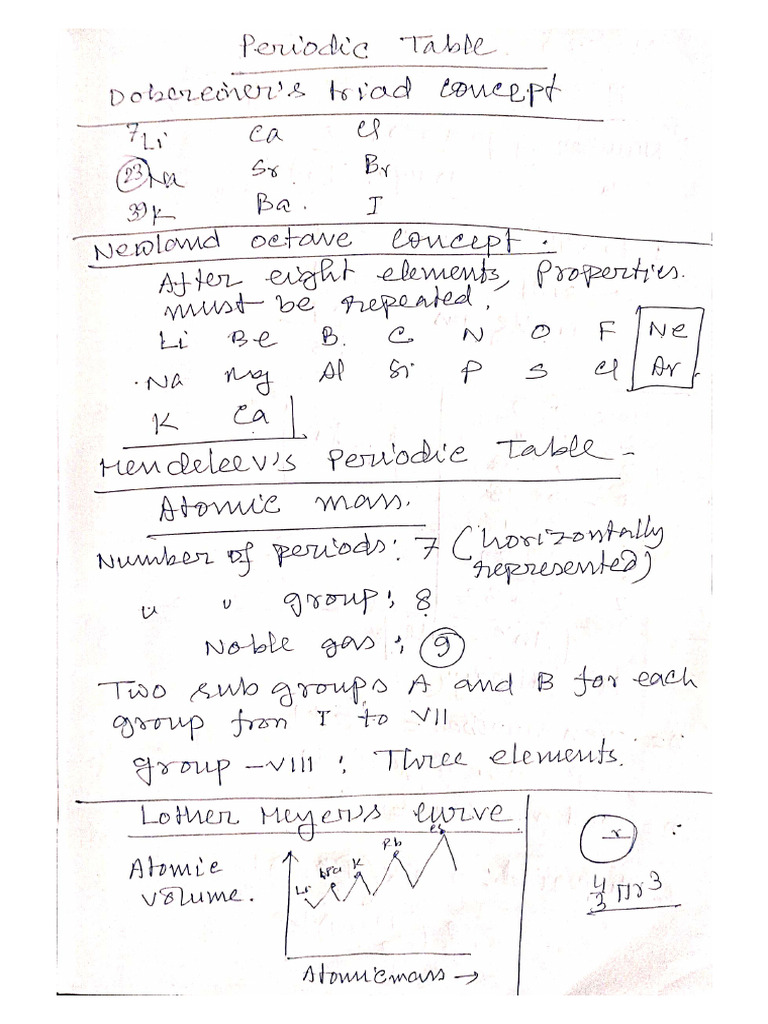 Periodic Table
Dobereiner's triad concept
7Li Ca Cl
23Na Sr Br
39K Ba. I
Newland octave concept.
After eight elements, Properties.
must be repeated.
Li Be B. C N O F Ne
Na Mg Al Si P S Cl Ar
K Ca
Mendeleev's Periodic Table -
Atomic mass.
Number of periods: 7 (horizontally
represented)
" " group: 8
Noble gas: 9
Two sub groups A and B for each
group from I to VII
group - VIII : Three elements.
Lother Meyer's curve
Atomic
volume.
Li Na K Rb Cs
Atomic mass →
r
4/3 πr3